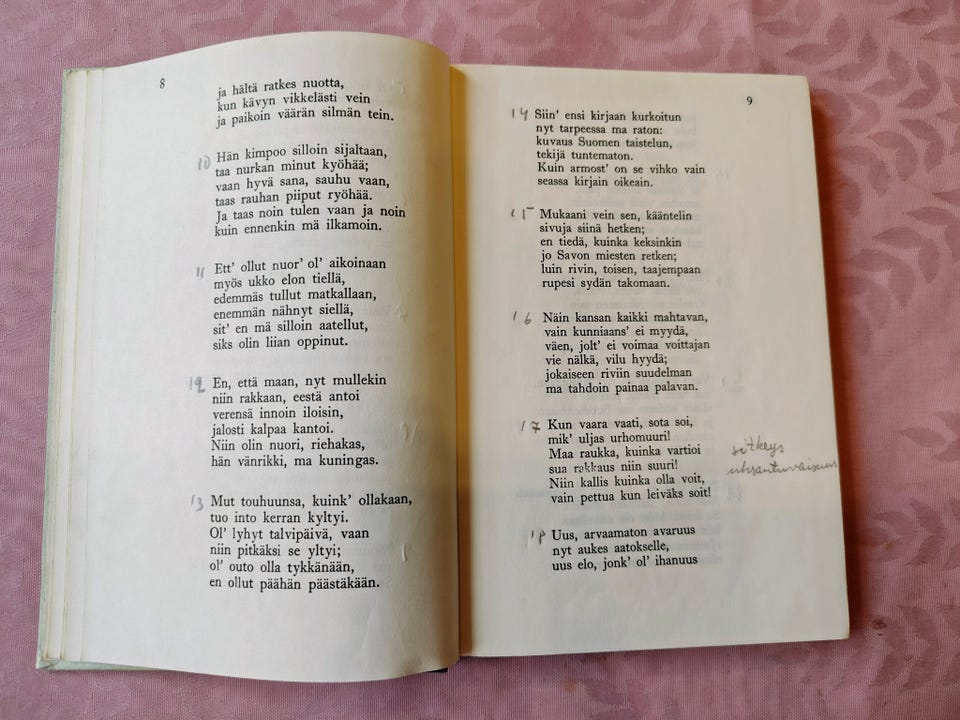 8
ja hältä ratkes nuotta,
kun kävyn vikkelästi vein
ja paikoin väärän silmän tein.
10 Hän kimpoo silloin sijaltaan,
taa nurkan minut kyöhää;
vaan hyvä sana, sauhu vaan,
taas rauhan piiput ryöhää.
Ja taas noin tulen vaan ja noin
kuin ennenkin mä ilkamoin.
11 Ett' ollut nuor' ol' aikoinaan
myös ukko elon tiellä,
edemmäs tullut matkallaan,
enemmän nähnyt siellä,
sit' en mä silloin aatellut,
siks olin liian oppinut.
12 En, että maan, nyt mullekin
niin rakkaan, eestä antoi
verensä innoin iloisin,
jalosti kalpaa kantoi.
Niin olin nuori, riehakas,
hän vänrikki, ma kuningas.
13 Mut touhuunsa, kuink' ollakaan,
tuo into kerran kyltyi.
Ol' lyhyt talvipäivä, vaan
niin pitkäksi se yltyi;
ol' outo olla tykkänään,
en ollut päähän päästäkään.
9
14 Siin' ensi kirjaan kurkoitun
nyt tarpeessa ma raton:
kuvaus Suomen taistelun,
tekijä tuntematon.
Kuin armost' on se vihko vain
seassa kirjain oikeain.
15 Mukaani vein sen, kääntelin
sivuja siinä hetken;
en tiedä, kuinka keksinkin
jo Savon miesten retken;
luin rivin, toisen, taajempaan
rupesi sydän takomaan.
16 Näin kansan kaikki mahtavan,
vain kunniaans' ei myydä,
väen, jolt' ei voimaa voittajan
vie nälkä, vilu hyydä;
jokaiseen riviin suudelman
ma tahdoin painaa palavan.
17 Kun vaara vaati, sota soi,
mik' uljas urhomuuri!
Maa raukka, kuinka vartioi
sua rakkaus niin suuri!
Niin kallis kuinka olla voit,
vain pettua kun leiväks soit!
sitkeys
uhrautuvaisuus
18 Uus, arvaamaton avaruus
nyt aukes aatokselle,
uus elo, jonk' ol' ihanuus